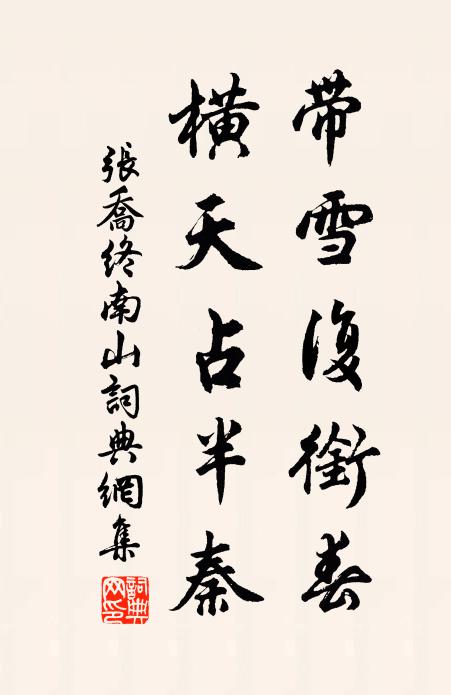 带雪復銜春
橫天占半秦
張喬終南山詞典網集
詞典網印